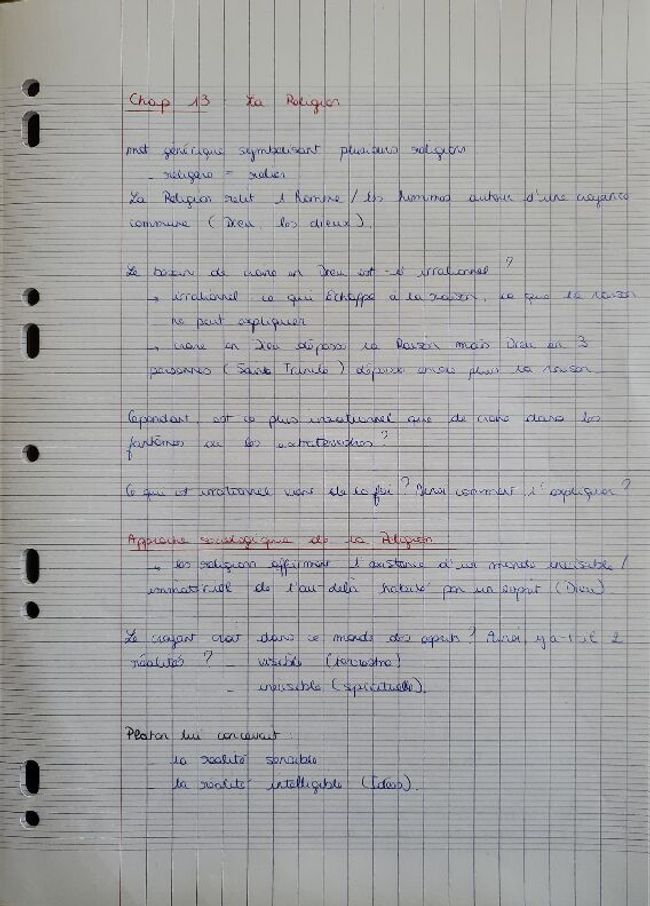 Chap 13 La Religion
mot générique symbolisant plusieurs religions
- religere = relier
La Religion relit l'homme / les hommes autour d'une croyance
commune (Dieu, les dieux).
Le besoin de croire en Dieu est-il irrationnel ?
→ irrationnel ce qui échappe à la raison, ce que la raison
ne peut expliquer
→ croire en Dieu dépasse la Raison mais Dieu en 3
personnes (Sainte Trinité) dépasse encore plus la raison
Cependant, est ce plus irrationnel que de croire dans les
fantômes ou les extraterrestres ?
Ce qui est irrationnel vient de la foi ? Ainsi comment l'expliquer ?
Approche sociologique de la Religion
→ les religion affirment l'existence d'un monde invisible /
immatériel de l'au-delà habité par un esprit (Dieu)
Le croyant croit dans ce monde des esprits ? Ainsi, y a-t-il 2
réalités ? - visible (terrestre)
- invisible (spirituelle).
Platon lui concevait :
- la réalité sensible
- la réalité intelligible (Idées).